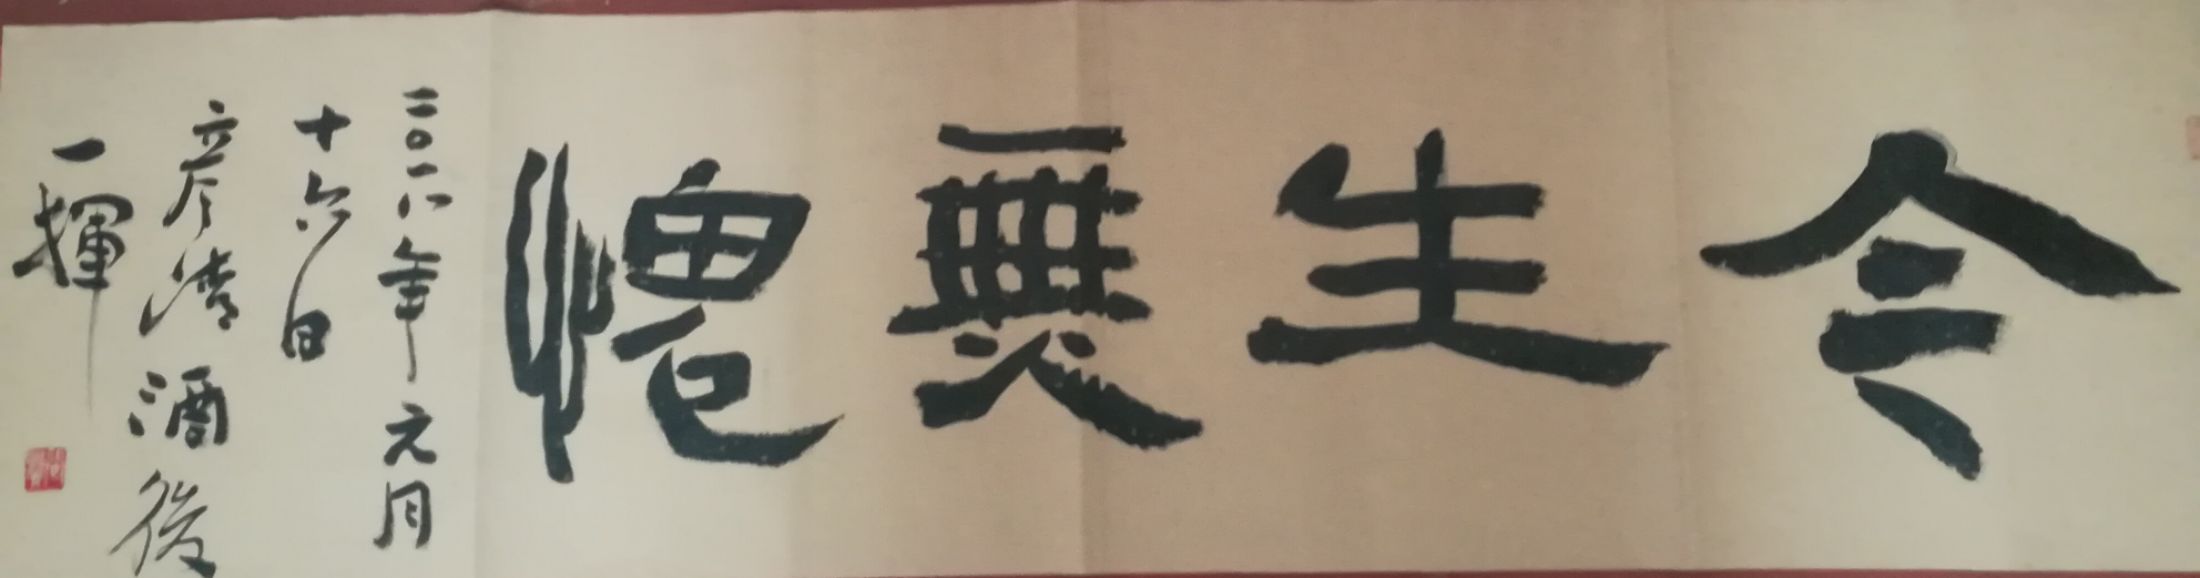 今生無愧
二〇一八年元月
十六日
彦涛酒後
一揮